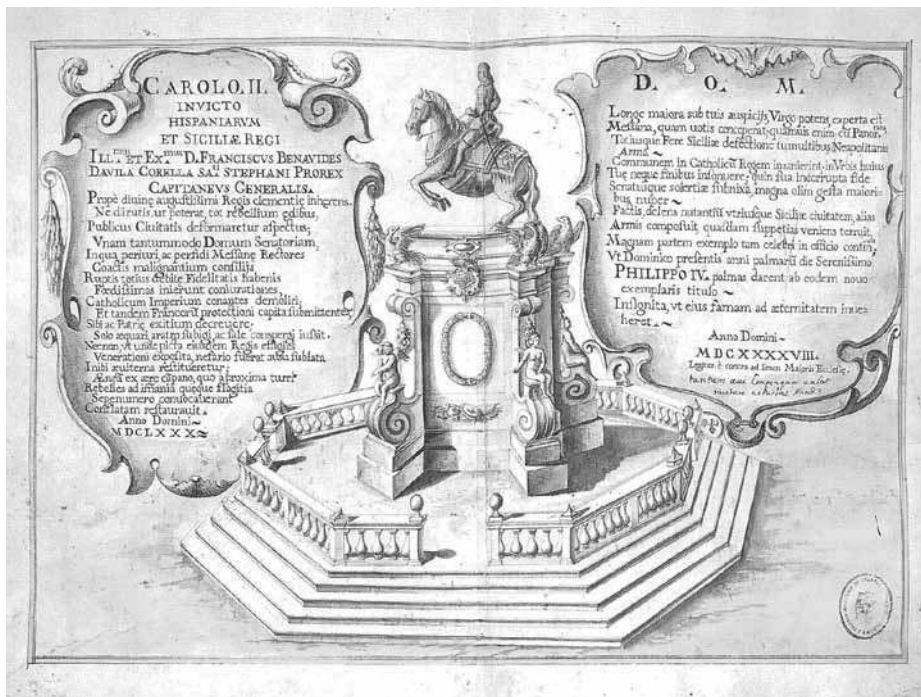 CAROLO. II.
INVICTO
HISPANIARVM
ET SICILIÆ REGI
ILL.mus ET EX.mus D. FRANCISCUS BENAVIDES
DAVILA CORELLA SA.ti STEPHANI PROREX
CAPITANEVS GENERALIS.
Propè divinę augustissimi Regis clementię inhęrens,
Ne dirutis, ut poterat, tot rebellium ędibus,
Publicus Ciuitatis deformaretur aspectus;
Vnam tantummodo Domum Senatoriam,
Inqua periuri, ac perfidi Messanę Rectores
Coactis malignantium consilijs
Ruptis totius debitę Fidelitatis habenis
Fœdissimas inierunt coniurationes,
Catholicum Imperium conantes demoliri,
Et tandem Francorũ protectioni capita submittentes
Sibi ac Patrię exitium decreuere,
Solo æquari, aratro subigi, ac sale conspergi iussit.
Necnon, vt unde picta eiusdem Regis effigies
Venerationi exposita, nefario fuerat ausu sublata
Inibi æuiterna restitueretur;
Æneã ex aere campano, quo a proxima turri
Rebelles ad insania quęque flagitia
Sepenumero conuocauerant
Conflatam restaurauit.
Anno Domini ~
MDCLXXX ~
D. O. M.
Longe maiora sub tuis auspicijs Virgo potens, experta est
Messana, quam uotis conceperat, quamuis enim cũ Panor.
Totiusque Fere Siciliæ defectione tumultibus Neapolitanis
Arma ~
Communem in Catholicũ Regem insanierint, in Vrbis huius
Tuę neque finibus insonuere, quin sua incorrupta fide
Senatusque solertiæ subnixa, magna olim gesta maiori-
bus, nuper ~
Factis, nutantiũ vtriusque Siciliæ ciuitatem, alias
Armis composuit, quasdam suppetias veniens terruit,
Magnam partem exemplo tam celestri in officio contin,
Vt Dominico presentis anni palmarũ die Serenissimo
PHILIPPO IV. palmas darent ab eodem nouo
exemplaris titulo ~
Insignita, vt eius famam ad æternitatem inue-
heret. ~
Anno Domini ~
MDCXXXXVIII.
Legitur è contra ad Maioris Ecclesię